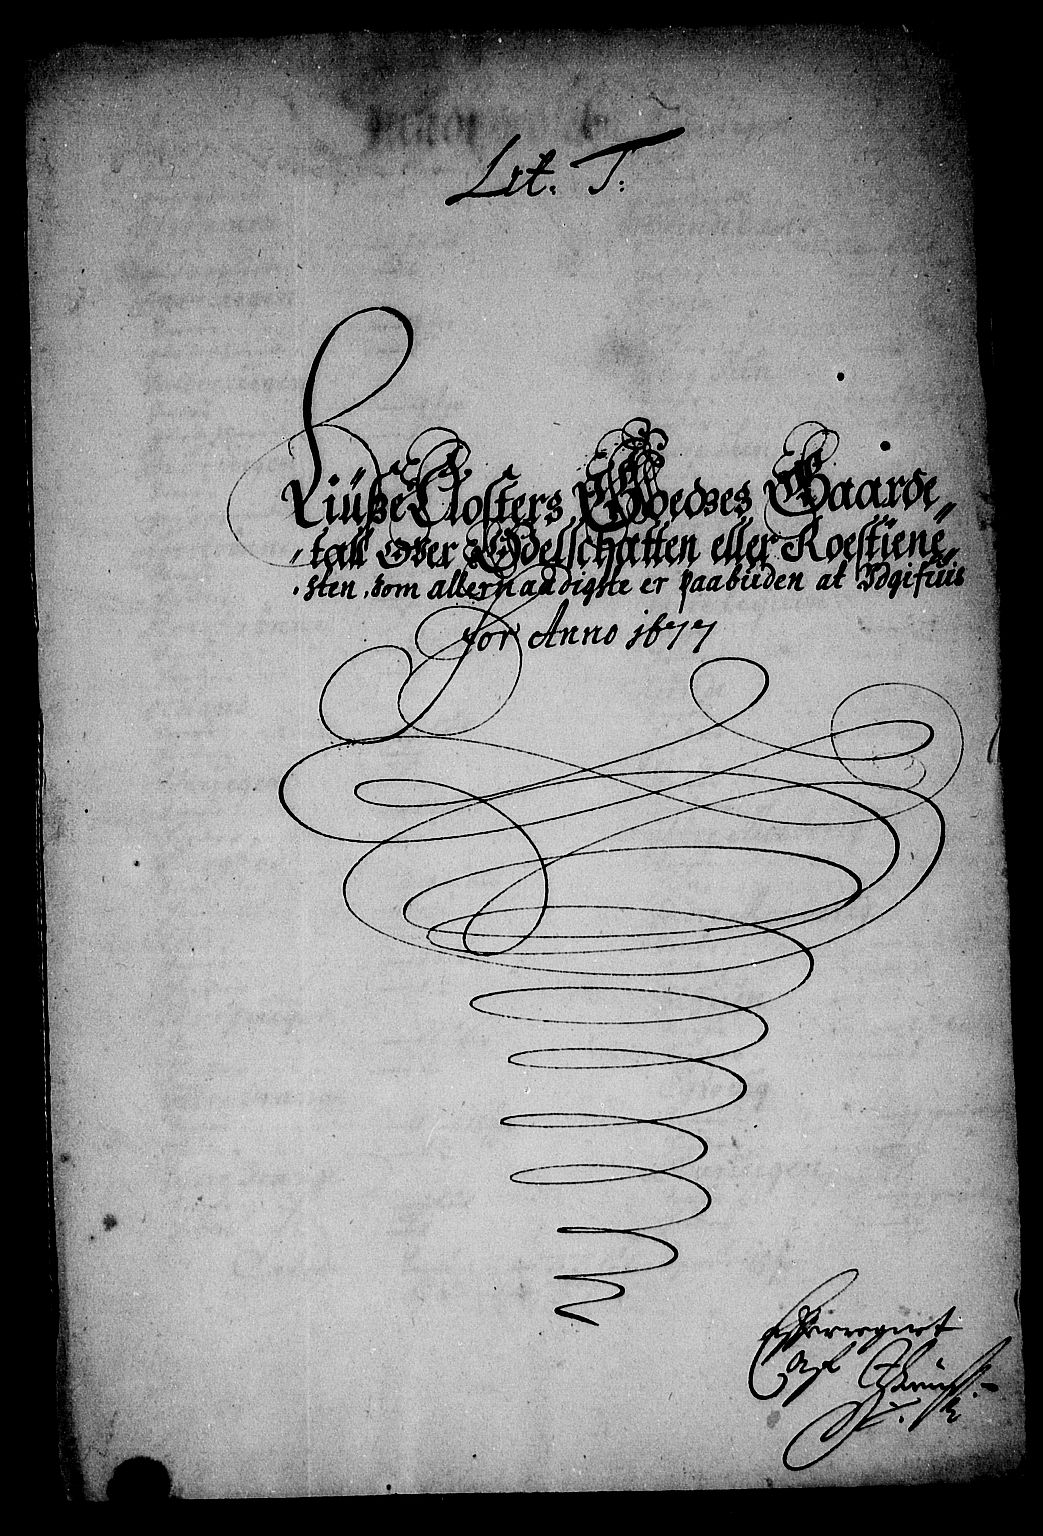 Lit. T.
Liuße Closters Goedzes Gaarde„
„tall over Odelschatten eller Roestiene„
sten, som allernaadigste er paabuden at Udgifuis
for Anno 1677
Efterregnet
Af